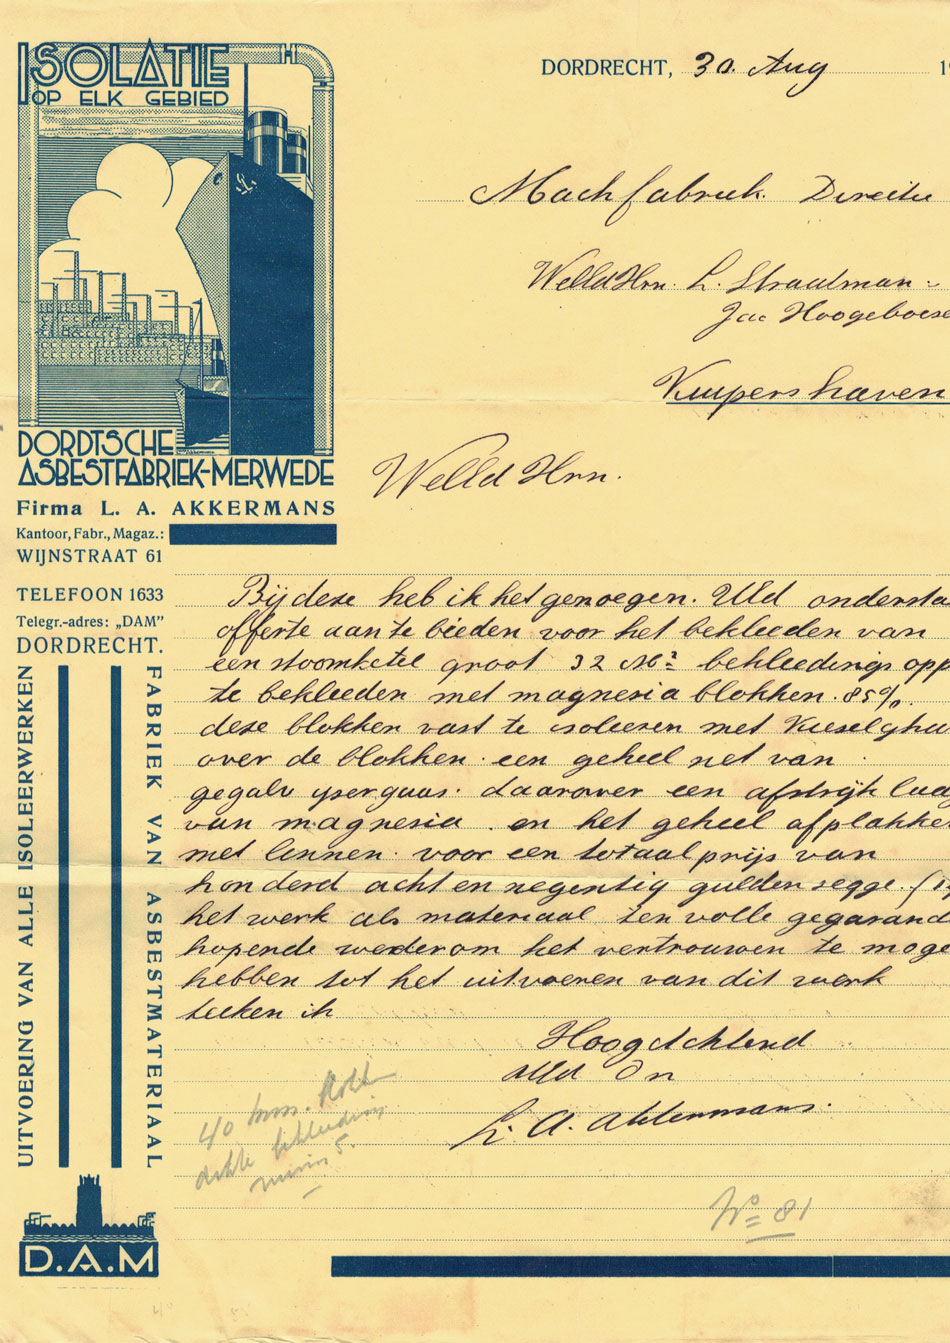 ISOLATIE
OP ELK GEBIED
DORDTSCHE
ASBESTFABRIEK-MERWEDE
Firma L. A. AKKERMANS
Kantoor, Fabr., Magaz.:
WIJNSTRAAT 61
TELEFOON 1633
Telegr.-adres: „DAM”
DORDRECHT.
UITVOERING VAN ALLE ISOLEERWERKEN
FABRIEK VAN ASBESTMATERIAAL
D.A.M
DORDRECHT, 30. Aug 19
Machfabriek. Directie
WelldHrn. L. Straatman
Jac Hoogeboese
Kuipershaven
Welld Hrn.
Bij deze heb ik het genoegen. Uld ondersta
offerte aan te bieden voor het bekleeden van
een stoomketel groot 32 M² bekleedings opp
te bekleeden met magnesia blokken. 85%.
deze blokken vast te isoleeren met Kieselghu
over de blokken een geheel net van
gegalv ysergaas. daarover een afstrijk laag
van magnesia. en het geheel afplakke
met linnen. voor een totaalprijs van
honderd acht en negentig gulden zegge. (19
het werk als materiaal ten volle gegarand
hopende wederom het vertrouwen te moge
hebben tot het uitvoeren van dit werk
teeken ik
Hoogachtend
Uld Dn
L. A. Akkermans.
40 mm.
dikte bekleeding
5.
No 81